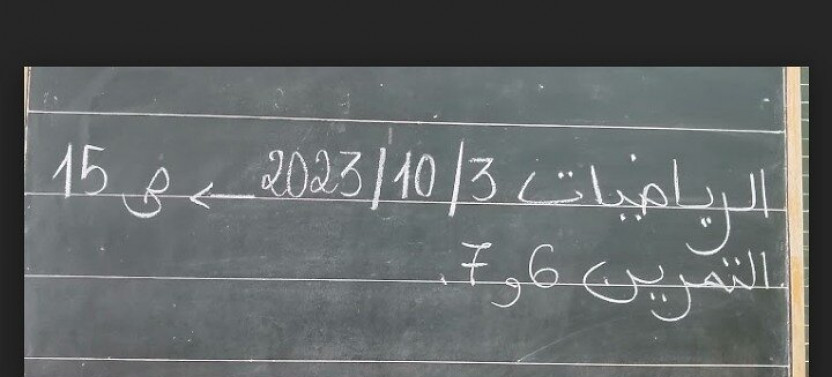 الرياضيات 3/10/2023 ← ص 15
التمرين 6 و 7.